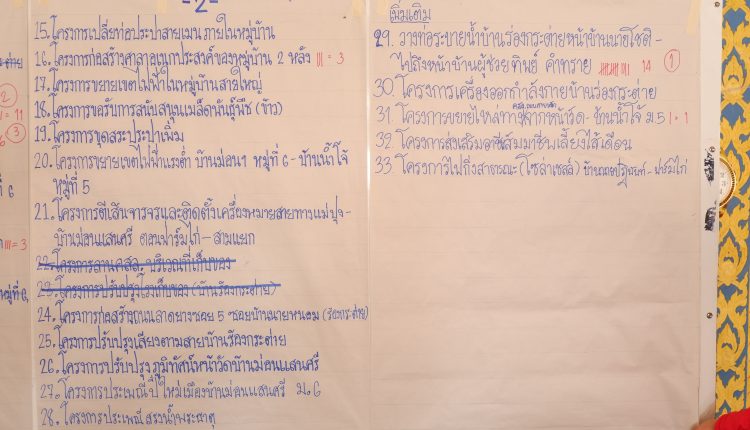 -2-
15. โครงการเปลี่ยท่อประปาสายเมน ภายในหมู่บ้าน
16. โครงการก่อสร้างศาลาอเนกประสงค์ของหมู่บ้าน 2 หลัง III = 3
17. โครงการขยายเขตไฟฟ้าในหมู่บ้านสายใหญ่
18. โครงการขอรับการสนับสนุนเมล็ดพันธุ์พืช (ข้าว)
19. โครงการขุดสระประปาเพิ่ม
20. โครงการขยายเขตไฟฟ้าแรงต่ำ บ้านม่อนฯ หมู่ที่ 6 - บ้านน้ำโจ้
หมู่ที่ 5
21. โครงการตีเส้นจารจรและติดตั้งเครื่องหมายสายทางแม่ปูง-
บ้านม่อนแสนศรี ตอนฟาร์มไก่ - สามแยก
22. โครงการลานคสล. บริเวณที่เก็บของ
23. โครงการปรับปรุงโรงเก็บของ (บ้านร้องกระต่าย)
24. โครงการก่อสร้างถนนลาดยางซอย 5 ซอยบ้านนายหนอม (ร้องกระต่าย)
25. โครงการปรับปรุงเสียงตามสายบ้านร้องกระต่าย
26. โครงการปรับปรุงภูมิทัศน์หน้าวัดบ้านม่อนแสนศรี
27. โครงการประเพณีปีใหม่เมืองบ้านม่อนแสนศรี ม.6
28. โครงการประเพณีสรงน้ำพระธาตุ
เพิ่มเติม
29. วางท่อระบายน้ำบ้านร้องกระต่ายหน้าบ้านนายโชติ -
ไปถึงหน้าบ้านผู้ช่วยทินย์ คำทราย 14 1
30. โครงการเครื่องออกกำลังกายบ้านร้องกระต่าย
31. โครงการขยายไหล่ทางจากหน้าวัด - บ้านน้ำโจ้ ม.5 1 = 1
32. โครงการส่งเสริมอาชีพสัมมาชีพเลี้ยงไส้เดือน
33. โครงการไฟกิ่งสาธารณะ (โซล่าเซลล์)